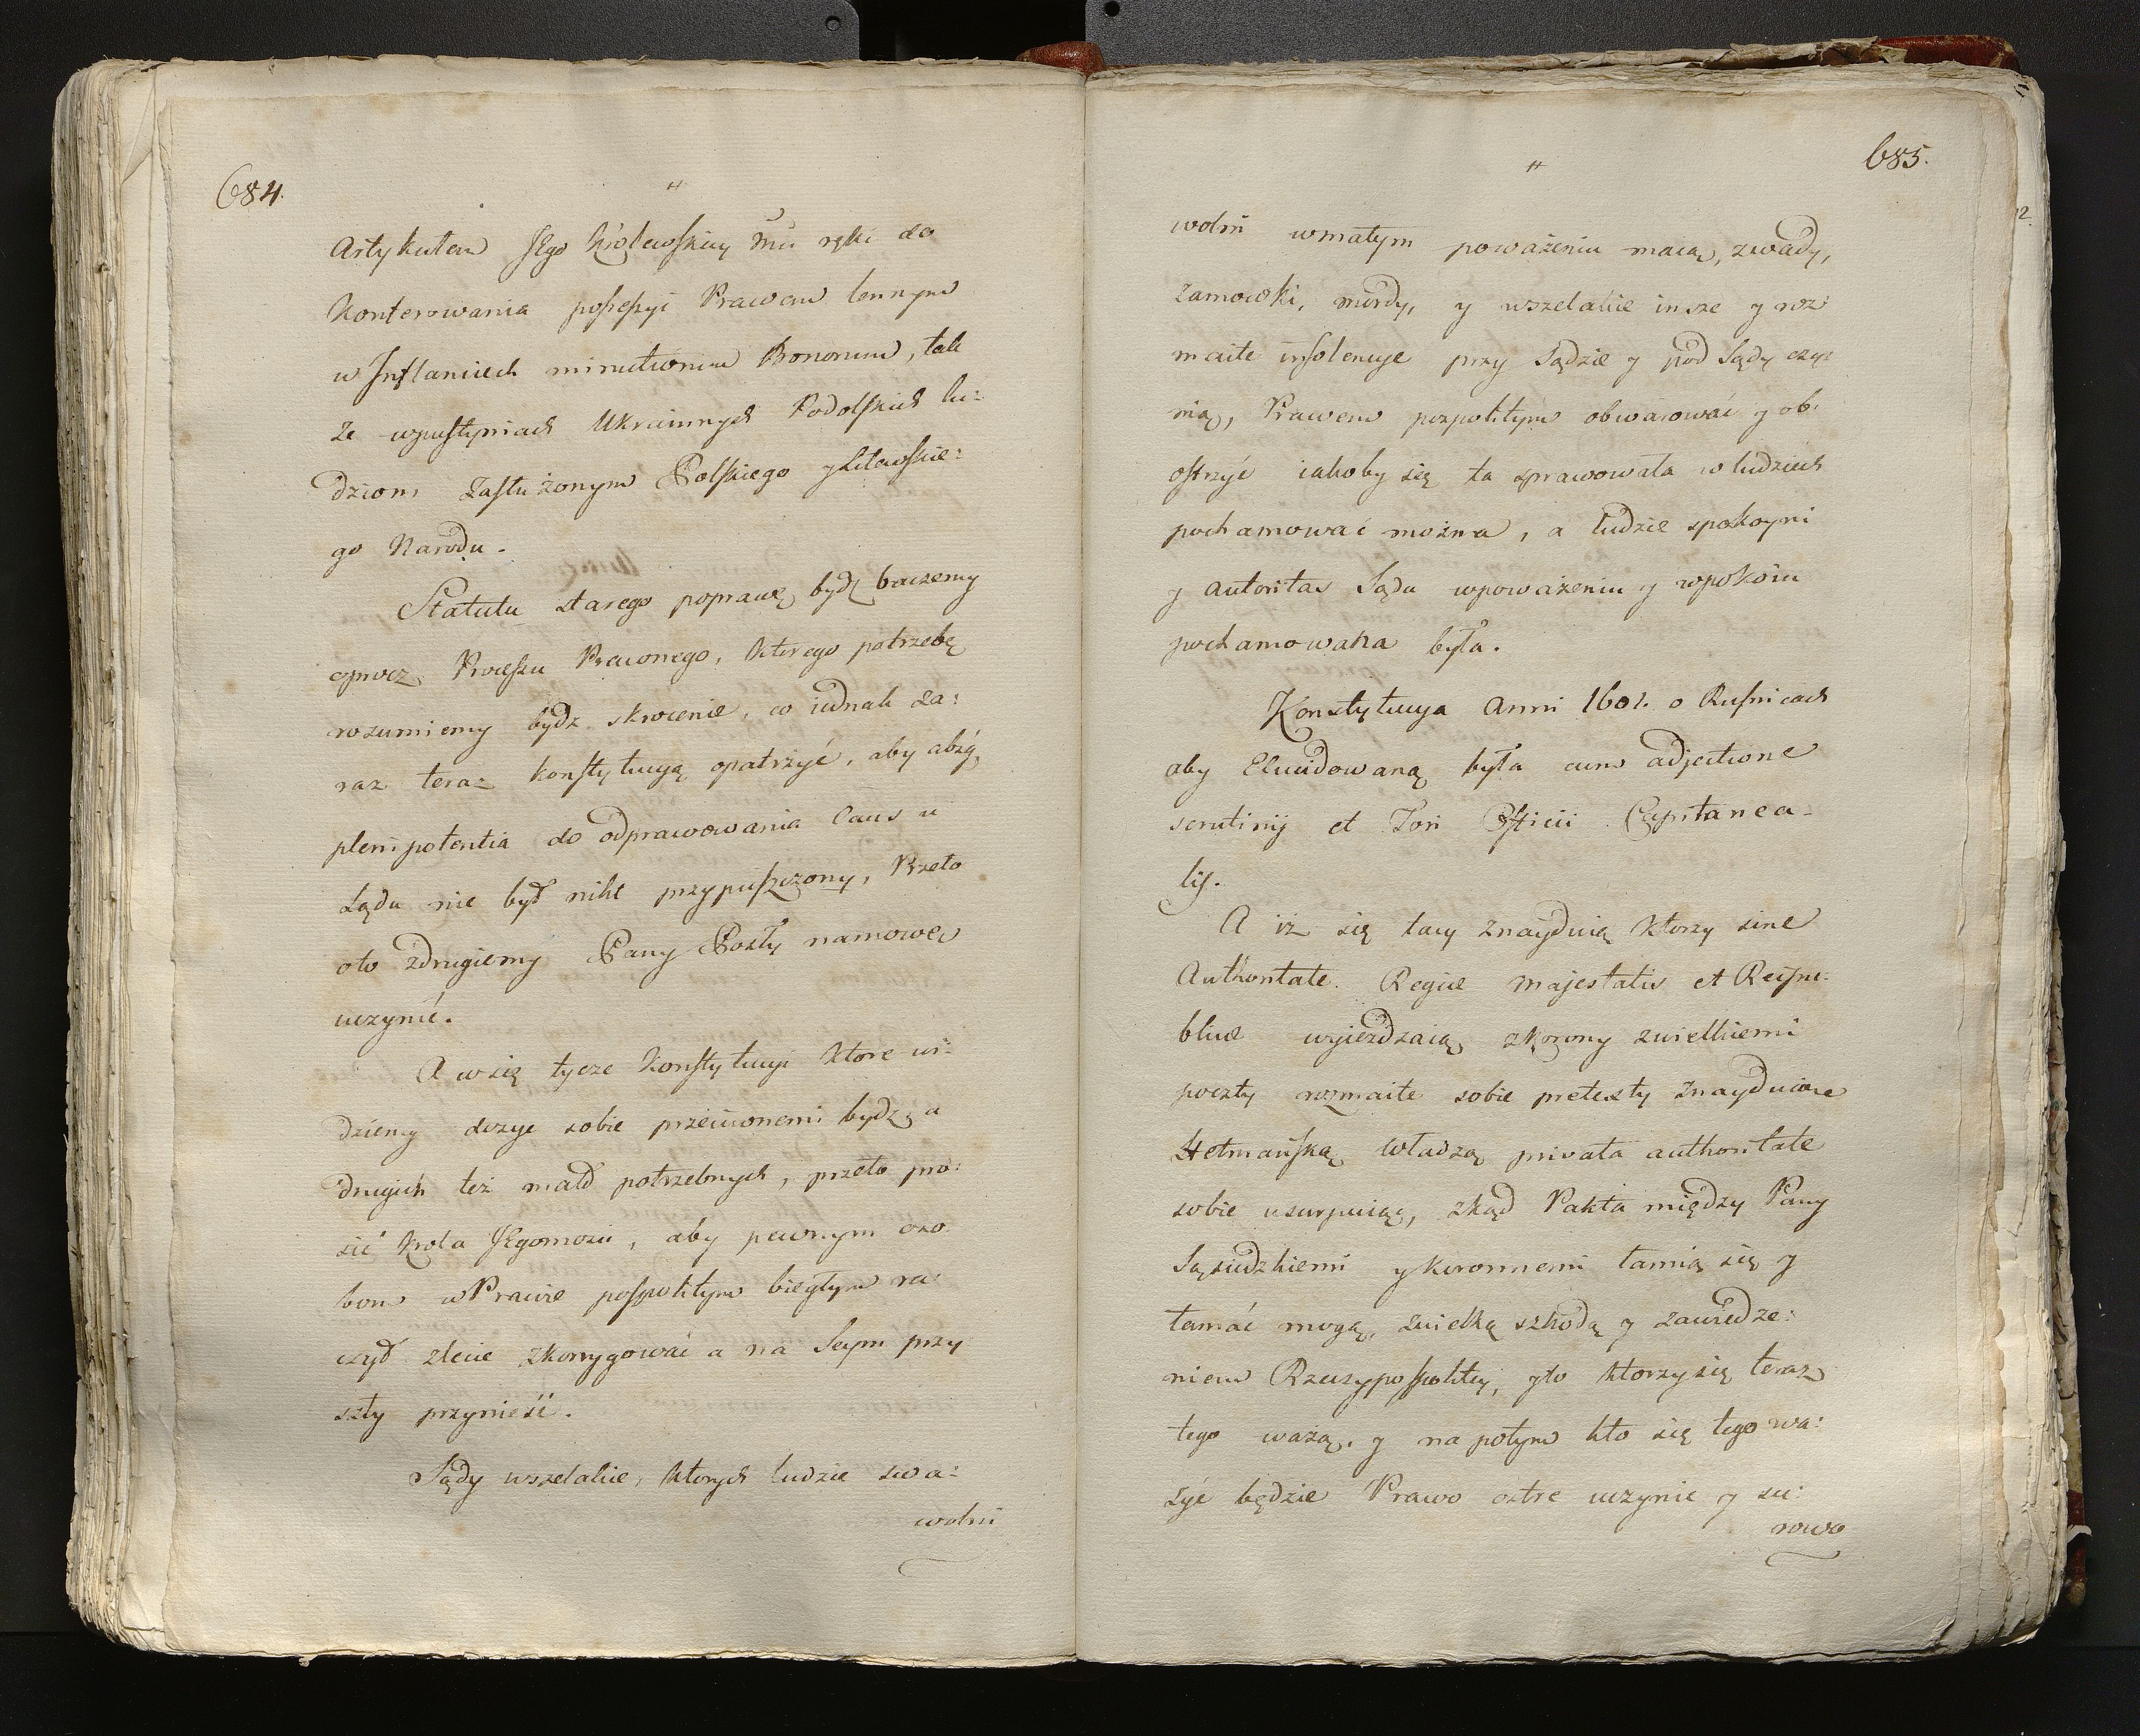 684.
Artykułem JEgo Królewskiey Mci ręki do
Konferowania possessyi Prawem lennym
w Inflanciech minutionem Bonorum, tak
że wpustyniach Ukrainnych Podolskich lu:
dziom Zasłużonym Polskiego y Litewskie:
go Narodu.
Statutu starego poprawę bydź baczemy
oprocz Processu Prawnego, ktorego potrzebę
rozumiemy bydz skrocenie, co iednak za:
raz teraz konstytucyą opatrzyć, aby absq,
plenipotentia do odprawowania Caus u
Sądu nie był nikt przypuszczony, Przeto
oto zdrugiemy Pany Posły namowę
uczynić.
A co się tycze konstytucyi ktore wi:
dziemy dosyc sobie przeciwnemi bydz, a
drugich też mało potrzebnych, przeto pro:
sić Krola JEgomosci, aby pewnym oso
bom w Prawie pospolitym biegłym ra:
czył zlecic zkorrygować a na Seym przy
szły przynieść.
Sądy wszelakie, ktorych ludzie swa:
wolni
685.
wolni wmałym poważeniu maią, zwady,
Zamowki, mordy, y wszelakie insze y roz:
maite insolencye przy Sądzie y pod Sądy czy:
nią, Prawem pospolitym obwarować y ob:
ostrzyć iakoby się ta sprawowała w ludziech
pochamować można, a ludzie spokoyni
y autoritas Sądu wpoważeniu y wpokoiu
pochamowana była.
Konstytucya Anni 1601. o Rusnicach
aby Elucidowaną była cum adjectione
scrutinij et Fori Officii Capitanea-
lis.
A iż się tacy znayduią ktorzy sine
Authoritate Regiæ Majestatis et Reipu:
blicæ wyieżdzaią zkorony zwielkiemi
poczty rozmaite sobie pretexty znayduiące
Hetmańską władzą privata authoritate
sobie usurpuiąc, zkąd Pakta między Pany
Sąsiedzkiemi y koronnemi łamią się y
łamać mogą, zwielką szkodą y zawiedze:
niem Rzeczypospolitey, yto ktorzy się teraz
tego ważą, y na potym kto się tego wa:
żyć będzie Prawo ostre uczynic y su:
rowo